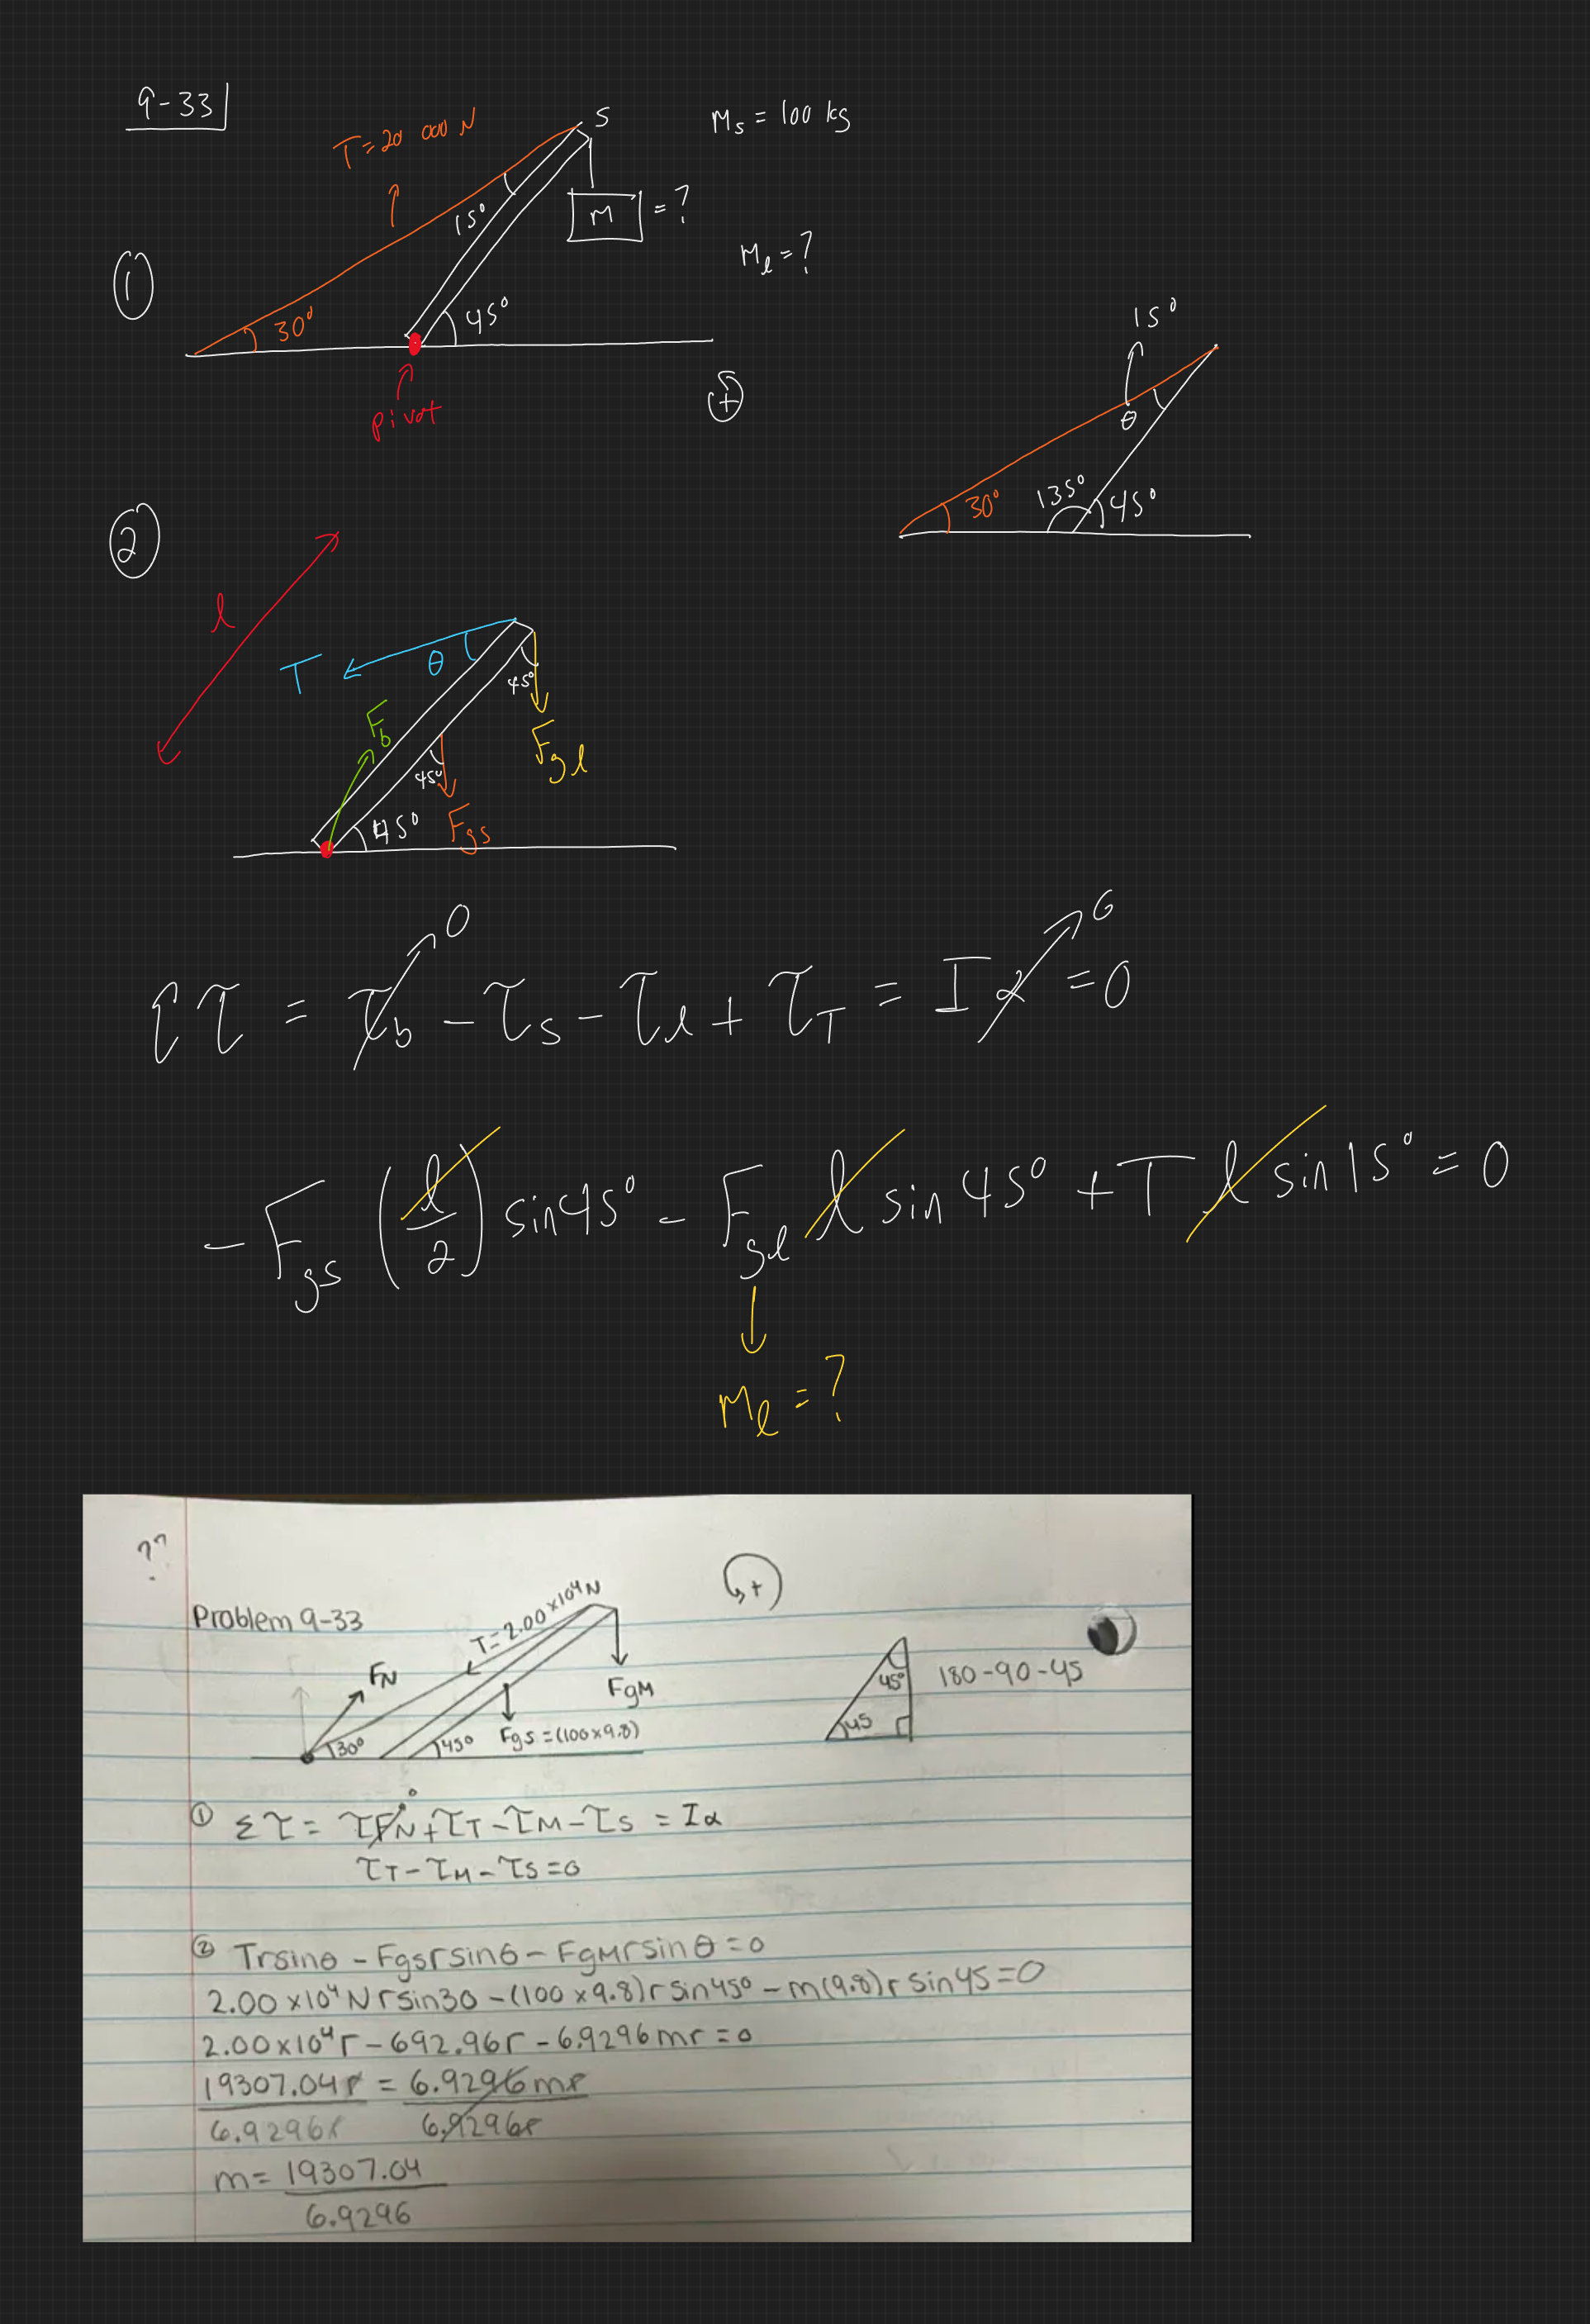 9-33
T = 20 000 N
S
M_s = 100 kg
15°
M = ?
M_l = ?
①
30°
45°
pivot
+
15°
θ
30°
135°
45°
②
l
T
θ
45°
F_b
F_gl
45°
45°
F_gs
Στ = τ_b - τ_s - τ_l + τ_T = Iα = 0
0
0
- F_gs (l/2) sin45° - F_gl l sin 45° + T l sin 15° = 0
M_l = ?
??
Problem 9-33
T = 2.00 x 10⁴ N
+
FN
FgM
30°
45°
Fgs = (100 x 9.8)
45°
45
180-90-45
① Στ = τFN + τT - τM - τS = Iα
0
τT - τM - τS = 0
② Trsinθ - Fgsrsinθ - FgMrsinθ = 0
2.00 x 10⁴ N r sin30 - (100 x 9.8) r sin45° - m(9.8) r sin45 = 0
2.00 x 10⁴ r - 692.96r - 6.9296mr = 0
19307.04r = 6.9296mr
6.9296r 6.9296r
m = 19307.04
6.9296